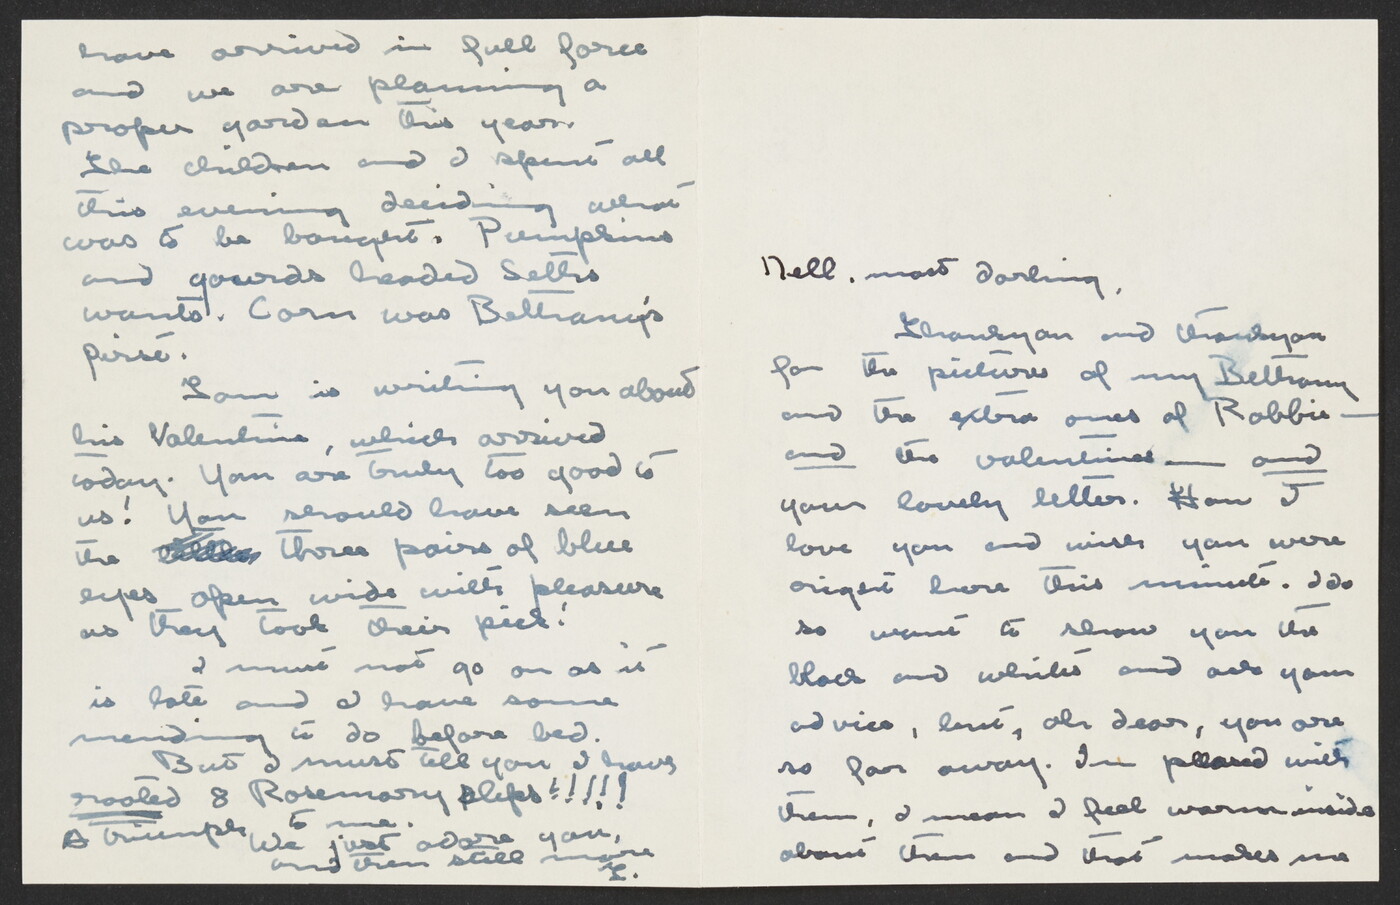 Nell, most darling,
Thankyou and thankyou
for the pictures of my Bethany
and the extra ones of Robbie —
and the valentines — and
your lovely letter. How I
love you and wish you were
right here this minute. I do
so want to show you the
black and whites and ask your
advice, but, oh dear, you are
so far away. I'm pleased with
them, I mean I feel warm inside
about them and that makes me
have arrived in full force
and we are planning a
proper garden this year.
The children and I spent all
this evening deciding what
was to be bought. Pumpkins
and gourds headed Seths
wants. Corn was Bethany's
first.
Tom is writing you about
his Valentine, which arrived
today. You are truly too good to
us! You should have seen
the three pairs of blue
eyes open wide with pleasure
as they took their pick!
I must not go on as it
is late and I have some
mending to do before bed.
But I must tell you I have
rooted 8 Rosemary slips!!!!!
A triumph to me.
We just adore you,
and then still more
T.